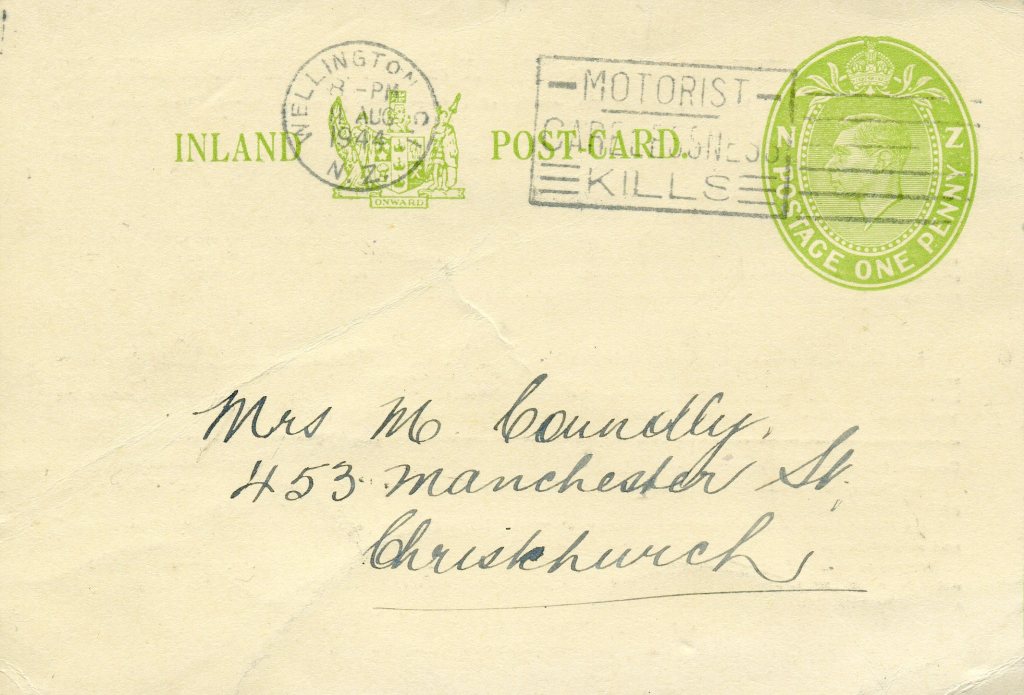 WELLINGTON C1
8 -PM
1 AUG
1944
N.Z.
INLAND POST CARD.
ONWARD
— MOTORIST —
CARELESSNESS
KILLS
N Z
POSTAGE ONE PENNY
Mrs M
453 Manchester St.
Christchurch